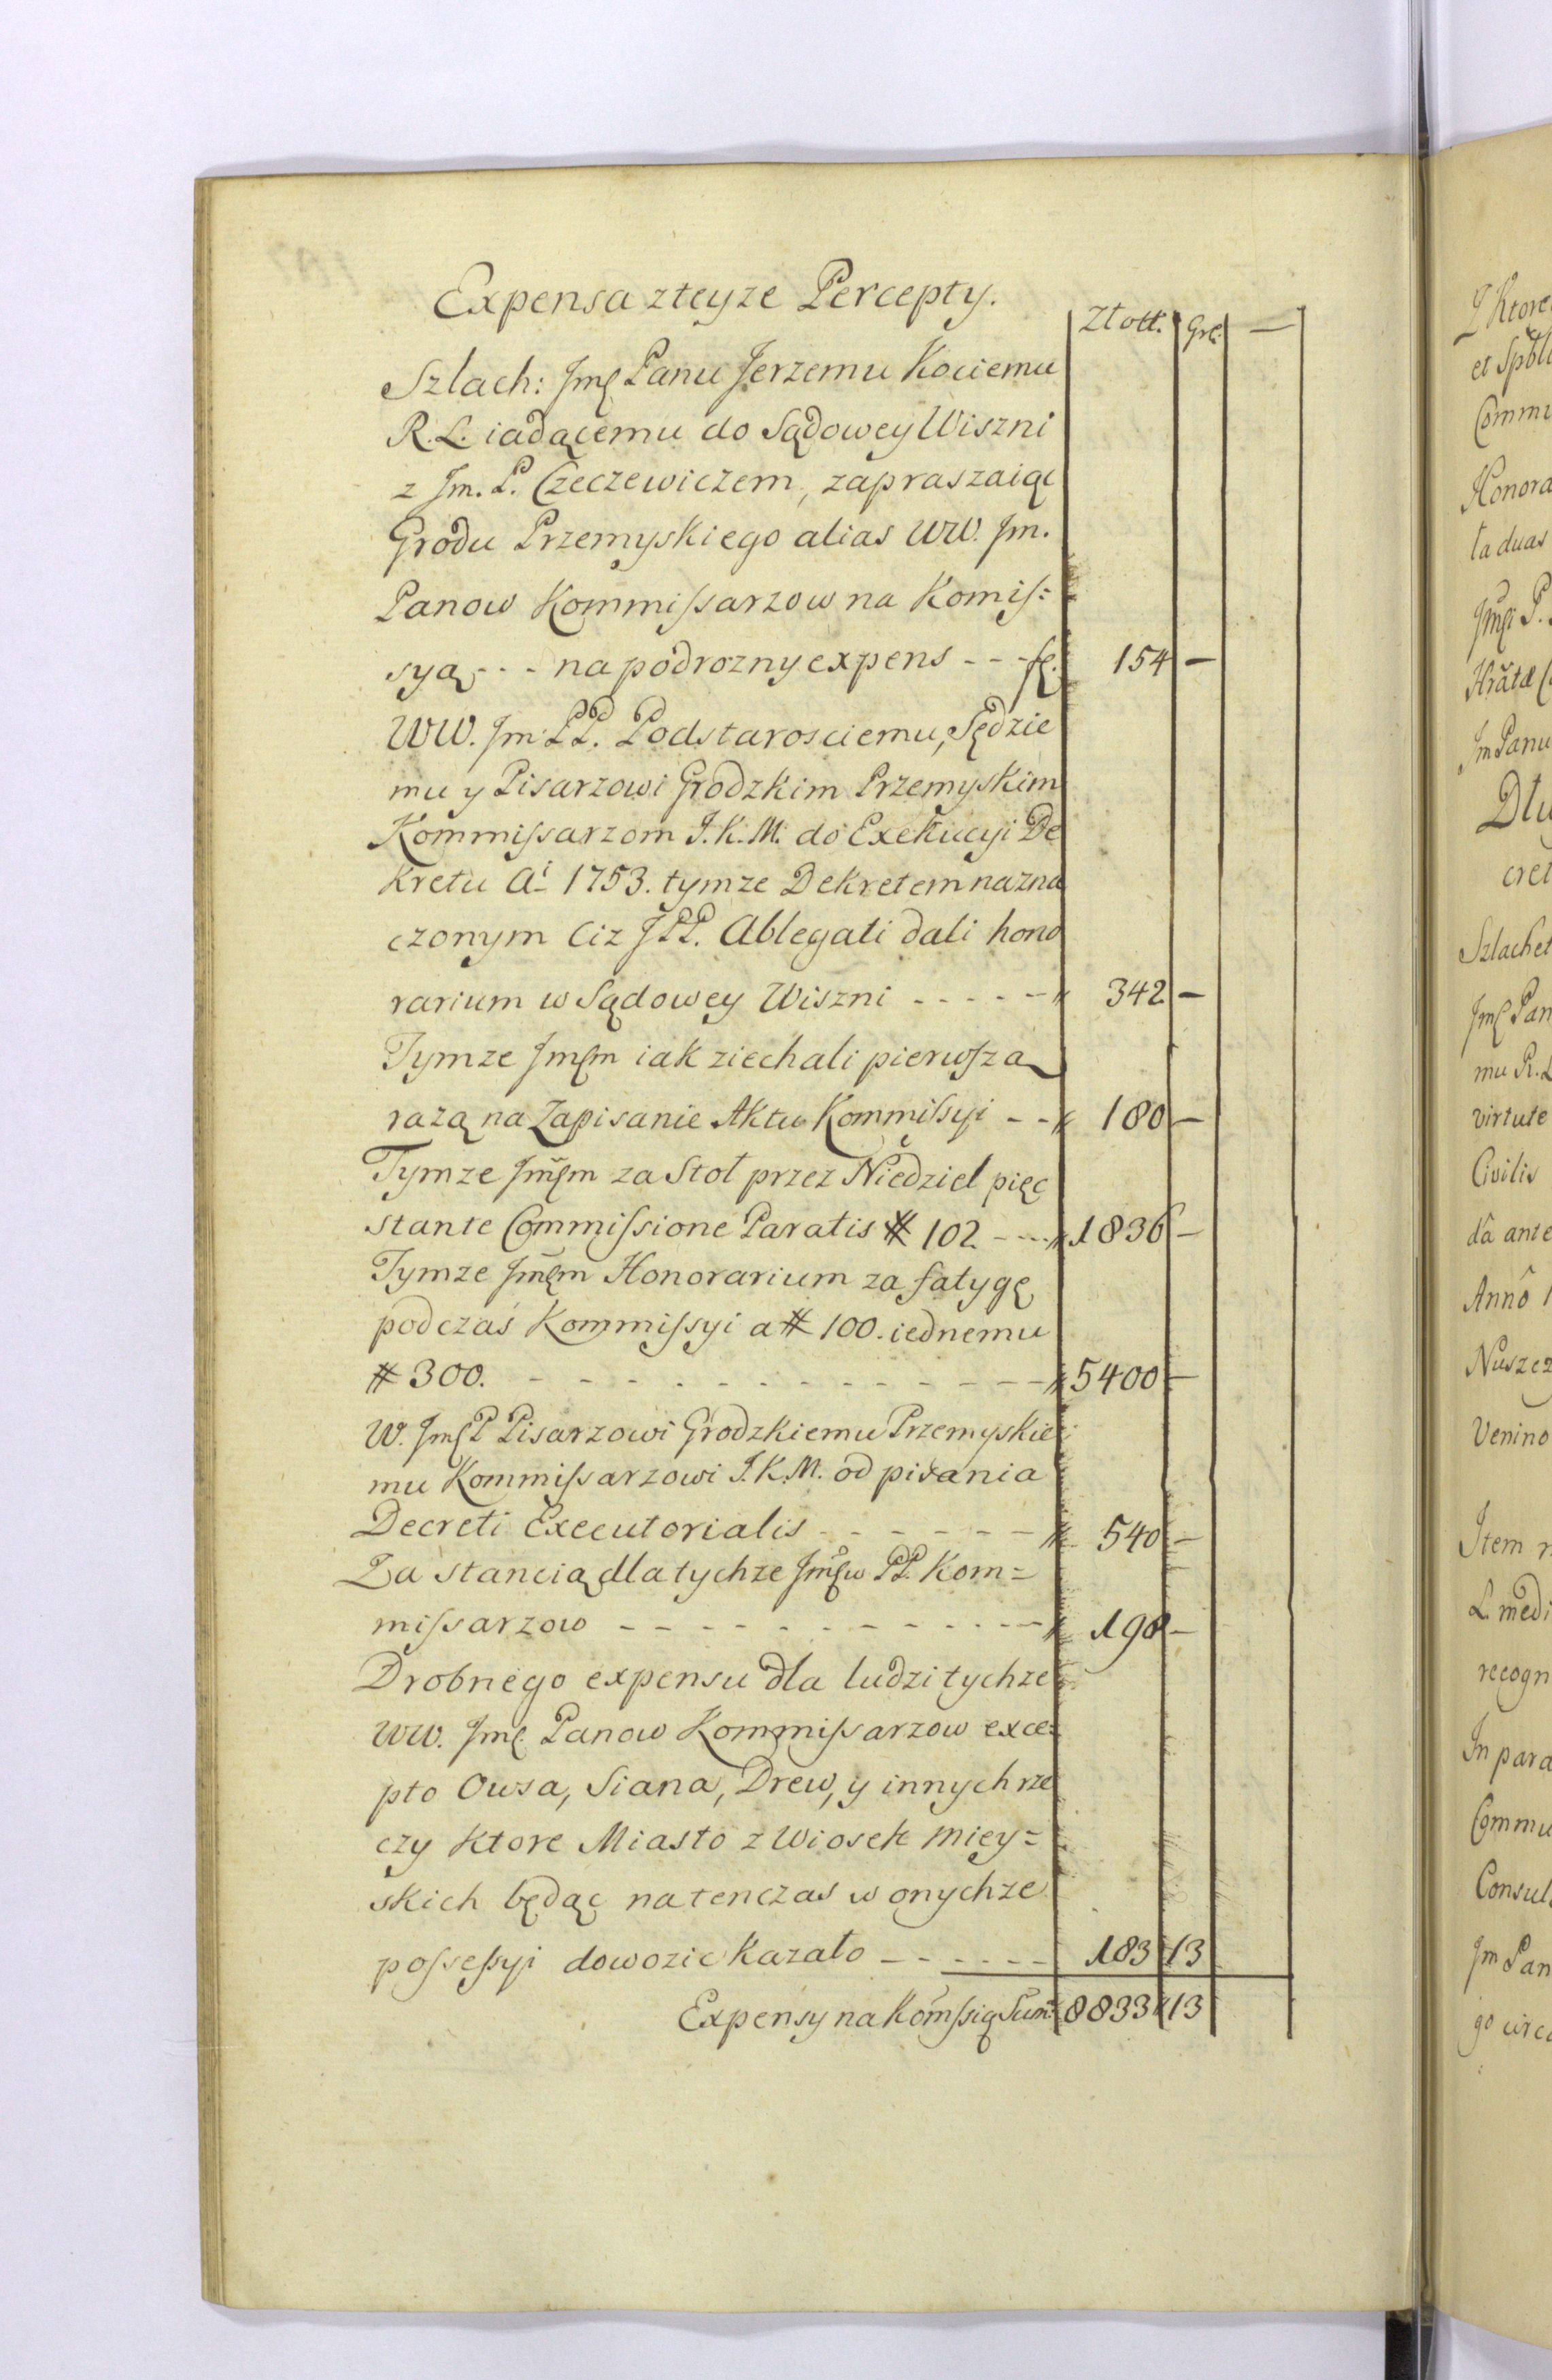 Expensa zteyze Percepty.
Złott. Gr.
Szlach: Jmę Panu Jerzemu Kociemu
R. L. iadącemu do Sądowey Wiszni
z Jm. P. Czeczewiczem, zapraszaiąc
Grodu Przemyskiego alias WW. Jm.
Panow Kommissarzow na Komis=
syą - - - na podrozny expens - - - fł. 154 —
WW. Jm PP. Podstarosciemu, Sędzie
mu y Pisarzowi Grodzkim Przemyskim
Kommissarzom J. K. M. do Exekucyi De
kretu Ai 1753. tymze Dekretem nazna
czonym Ciz JPP. Ablegati dali hono
rarium w Sądowey Wiszni - - - - - 342 —
Tymze Jmęm iak ziechali pierwszą
razą na Zapisanie Aktu Kommissyi - - 180 —
Tymze Jmęm za Stoł przez Niedziel pięc
stante Commissione Paratis # 102 - - - 1836 —
Tymze Jmęm Honorarium za fatygę
podczas Kommissyi a # 100. iednemu
# 300. - - - - - - - - - - - - - 5400 —
W. Jmę P Pisarzowi Grodzkiemu Przemyskie
mu Kommissarzowi J. K. M. od pisania
Decreti Executorialis - - - - - - 540 —
Za stancią dla tychze Jmęw PP. Kom=
missarzow - - - - - - - - - - - 198 —
Drobnego expensu dla ludzi tychze
WW. Jmę. Panow Kommissarzow exce=
pto Owsa, Siana, Drew, y innych rze
czy ktore Miasto z Wiosek miey=
skich będąc natenczas w onychze
possessyi dowozic kazało - - - - - - 183 13
Expensy na Komssią Sum: 8833 13
Z Ktore
Commu
Honora
ta duas
Jm Panu
Dłu
cret
Szlachet
Jmę Pan
mu R. L
virtute
Civilis
dâ ante
Annô 1
Venino
Item
L. medi
recogn
In para
Commu
Consul
Jm Pan
go circa